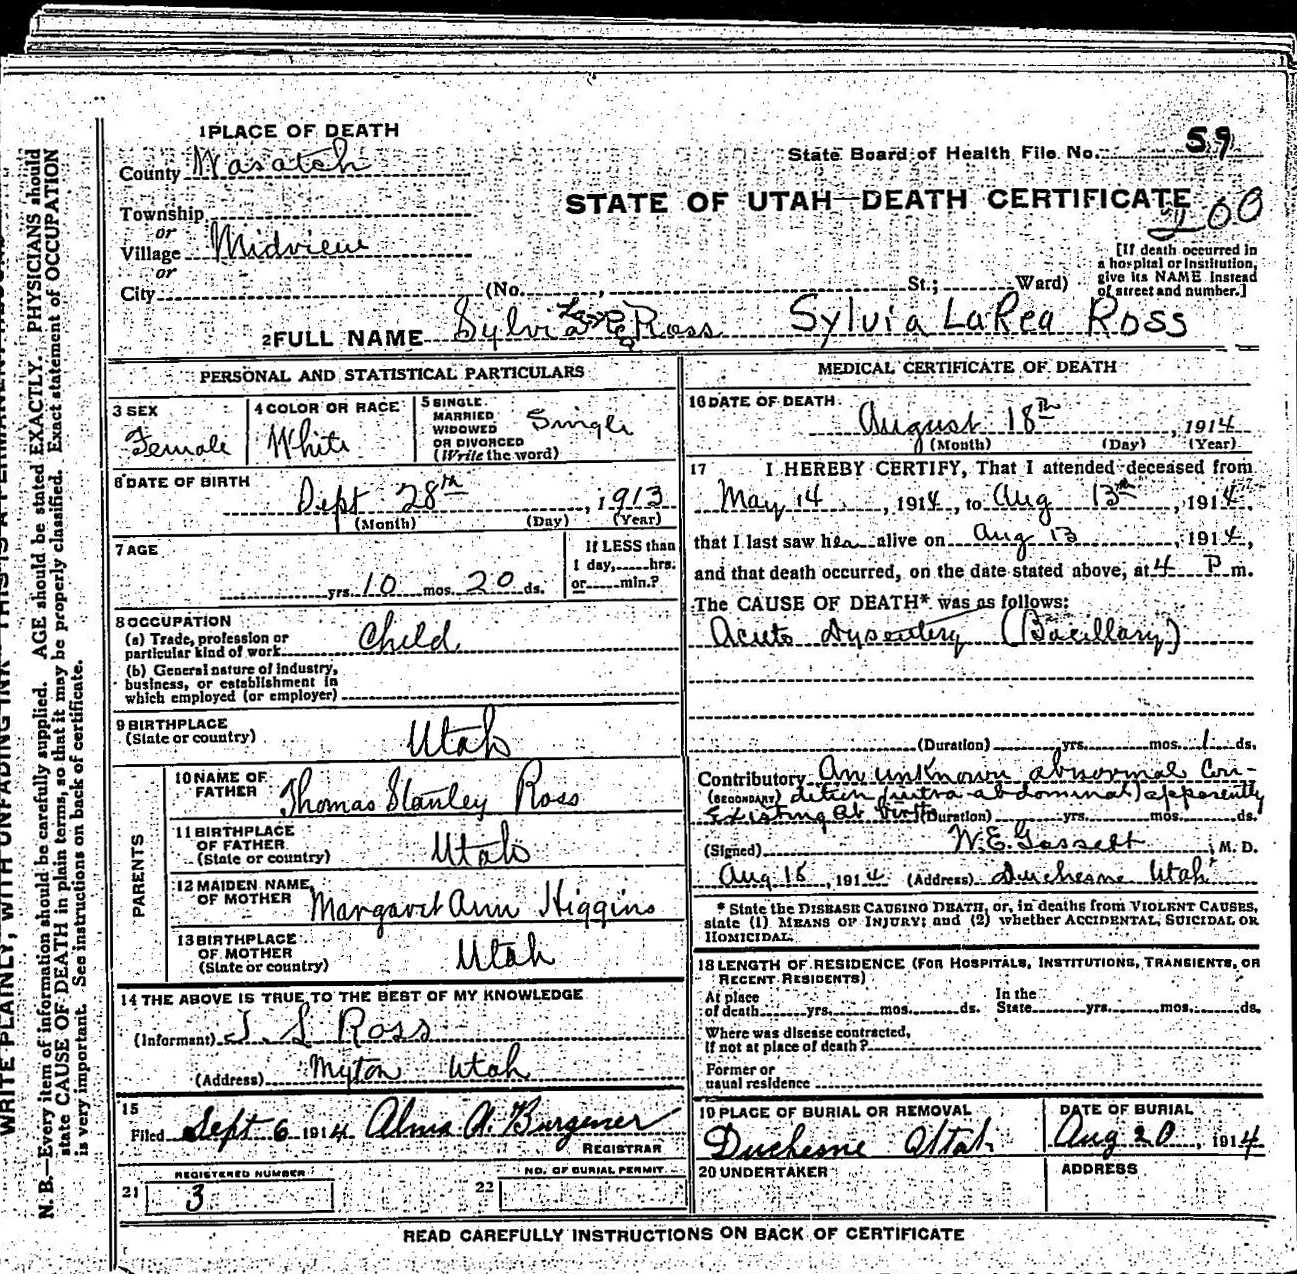 1 PLACE OF DEATH
County Wasatch
State Board of Health File No. 59
STATE OF UTAH—DEATH CERTIFICATE
200
Township
or
Village Midview
or
City (No. , St.; Ward)
[If death occurred in a hospital or institution, give its NAME instead of street and number.]
2 FULL NAME Sylvia La Rea Ross Sylvia LaRea Ross
PERSONAL AND STATISTICAL PARTICULARS
3 SEX
Female
4 COLOR OR RACE
White
5 SINGLE
MARRIED
WIDOWED
OR DIVORCED
(Write the word)
Single
6 DATE OF BIRTH
Sept 28th, 1913
(Month) (Day) (Year)
7 AGE
yrs. 10 mos. 20 ds.
If LESS than
1 day, hrs.
or min.?
8 OCCUPATION
(a) Trade, profession or
particular kind of work Child
(b) General nature of industry,
business, or establishment in
which employed (or employer)
9 BIRTHPLACE
(State or country)
Utah
PARENTS
10 NAME OF
FATHER Thomas Stanley Ross
11 BIRTHPLACE
OF FATHER
(State or country) Utah
12 MAIDEN NAME
OF MOTHER Margaret Ann Higgins
13 BIRTHPLACE
OF MOTHER
(State or country) Utah
14 THE ABOVE IS TRUE TO THE BEST OF MY KNOWLEDGE
(Informant) T. S. Ross
(Address) Myton Utah
15
Filed Sept 6 1914 Alma A. Burgener
REGISTRAR
REGISTERED NUMBER
21 3
NO. OF BURIAL PERMIT
22
MEDICAL CERTIFICATE OF DEATH
16 DATE OF DEATH
August 18th, 1914
(Month) (Day) (Year)
17 I HEREBY CERTIFY, That I attended deceased from
May 14, 1914, to Aug 13th, 1914,
that I last saw her alive on Aug 13, 1914,
and that death occurred, on the date stated above, at 4 P m.
The CAUSE OF DEATH* was as follows:
Acute Dysentery (Bacillary)
(Duration) yrs. mos. 1 ds.
Contributory An unknown abnormal con-
(SECONDARY) dition (intra-abdominal) apparently
existing at birth (Duration) yrs. mos. ds.
(Signed) W. E. Gossett, M. D.
Aug 18, 1914 (Address) Duchesne Utah
* State the DISEASE CAUSING DEATH, or, in deaths from VIOLENT CAUSES,
state (1) MEANS OF INJURY; and (2) whether ACCIDENTAL, SUICIDAL OR
HOMICIDAL.
18 LENGTH OF RESIDENCE (FOR HOSPITALS, INSTITUTIONS, TRANSIENTS, OR
RECENT RESIDENTS)
At place
of death yrs. mos. ds.
In the
State yrs. mos. ds.
Where was disease contracted,
If not at place of death?
Former or
usual residence
19 PLACE OF BURIAL OR REMOVAL
Duchesne Utah
DATE OF BURIAL
Aug 20, 1914
20 UNDERTAKER
ADDRESS
READ CAREFULLY INSTRUCTIONS ON BACK OF CERTIFICATE
N. B.—Every item of information should be carefully supplied. AGE should be stated EXACTLY. PHYSICIANS should
state CAUSE OF DEATH in plain terms, so that it may be properly classified. Exact statement of OCCUPATION
is very important. See instructions on back of certificate.
WRITE PLAINLY, WITH UNFADING INK—THIS IS A PERMANENT